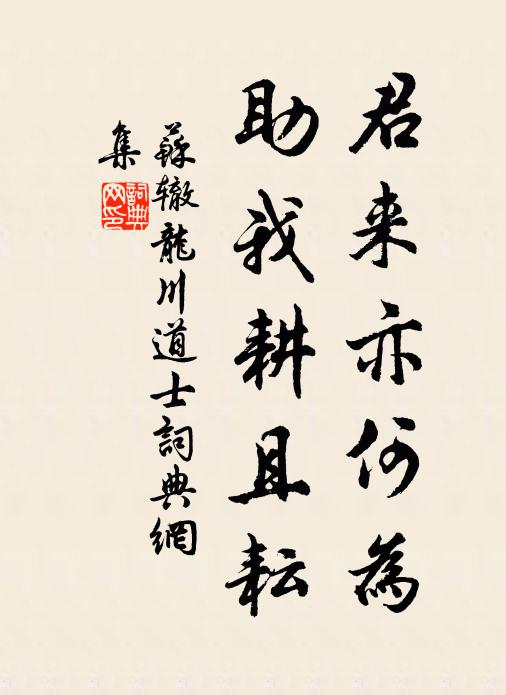 君来亦何為
助我耕且耘
蘇辙龍川道士詞典網
集
詞典
网印